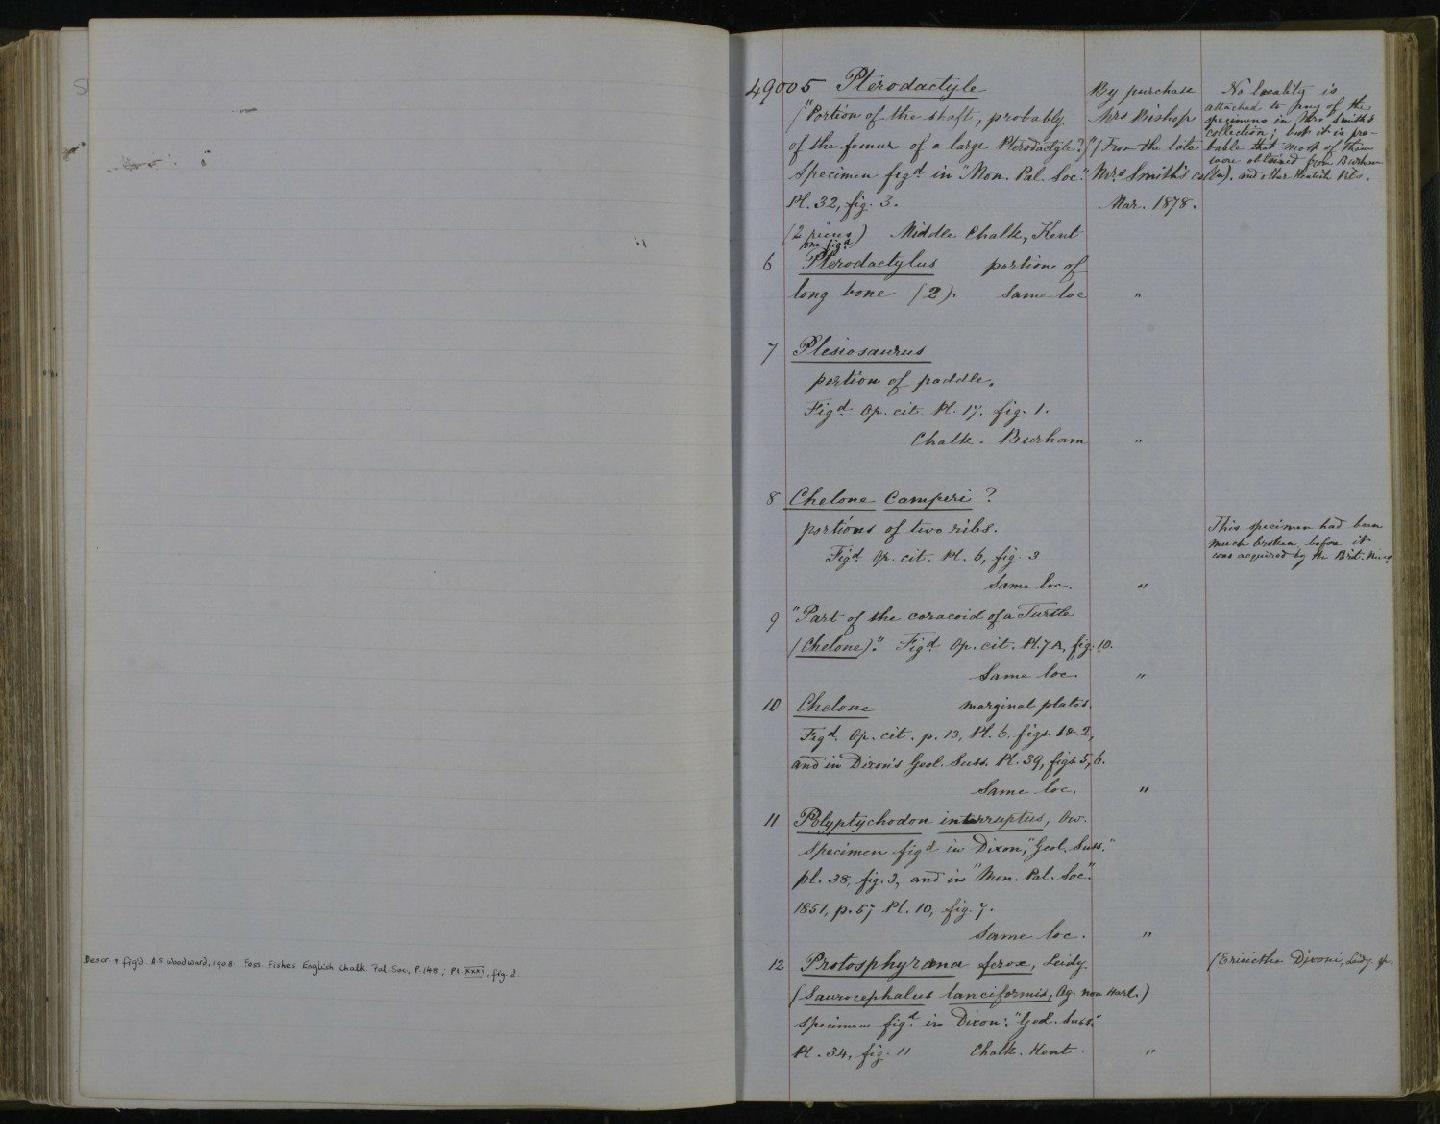 Descr. & fig'd. A.S. Woodward, 1908. Foss. Fishes English Chalk. Pal. Soc., P. 148; Pl. XXXI, fig. 2.
49005 Pterodactyle
("Portion of the shaft, probably
of the femur of a large Pterodactyle?"
Specimen figd in "Mon. Pal. Soc."
Pl. 32, fig. 3.
(2 pieces) Middle Chalk, Kent
one figd
By purchase
Mrs Bishop
(From the late
Mrs Smith's colln).
Mar. 1878.
No locality is
attached to any of the
specimens in Mrs Smith's
collection; but it is pro-
bable that most of them
were obtained from Burham
and other Kentish Pits.
6 Pterodactylus portion of
long bone (2). Same loc "
7 Plesiosaurus
portion of paddle.
Figd Op. cit. Pl. 17. fig. 1.
Chalk. Burham "
8 Chelone Camperi ?
portions of two ribs.
Figd. Op. cit. Pl. 6, fig. 3
Same loc. "
This specimen had been
much broken before it
was acquired by the Brit. Mus.
9 "Part of the coracoid of a Turtle
(Chelone)". Figd. Op. cit. Pl. 7A, fig. 10.
Same loc. "
10 Chelone marginal plates.
Figd. Op. cit. p. 13, Pl. 6, figs. 1 & 2,
and in Dixon's Geol. Suss. Pl. 39, figs 5, 6.
Same loc. "
11 Polyptychodon interruptus, Ow.
Specimen figd in Dixon, "Geol. Suss."
pl. 38, fig. 3, and in "Mon. Pal. Soc."
1851, p. 57 Pl. 10, fig. 7.
Same loc. "
12 Protosphyraena ferox, Leidy.
(Saurocephalus lanciformis, Ag. non Harl.)
Specimen figd. in Dixon: "Geol. Suss."
Pl. 34, fig. 11 Chalk. Kent. "
(Erisicthe Dixoni, Leidy sp.